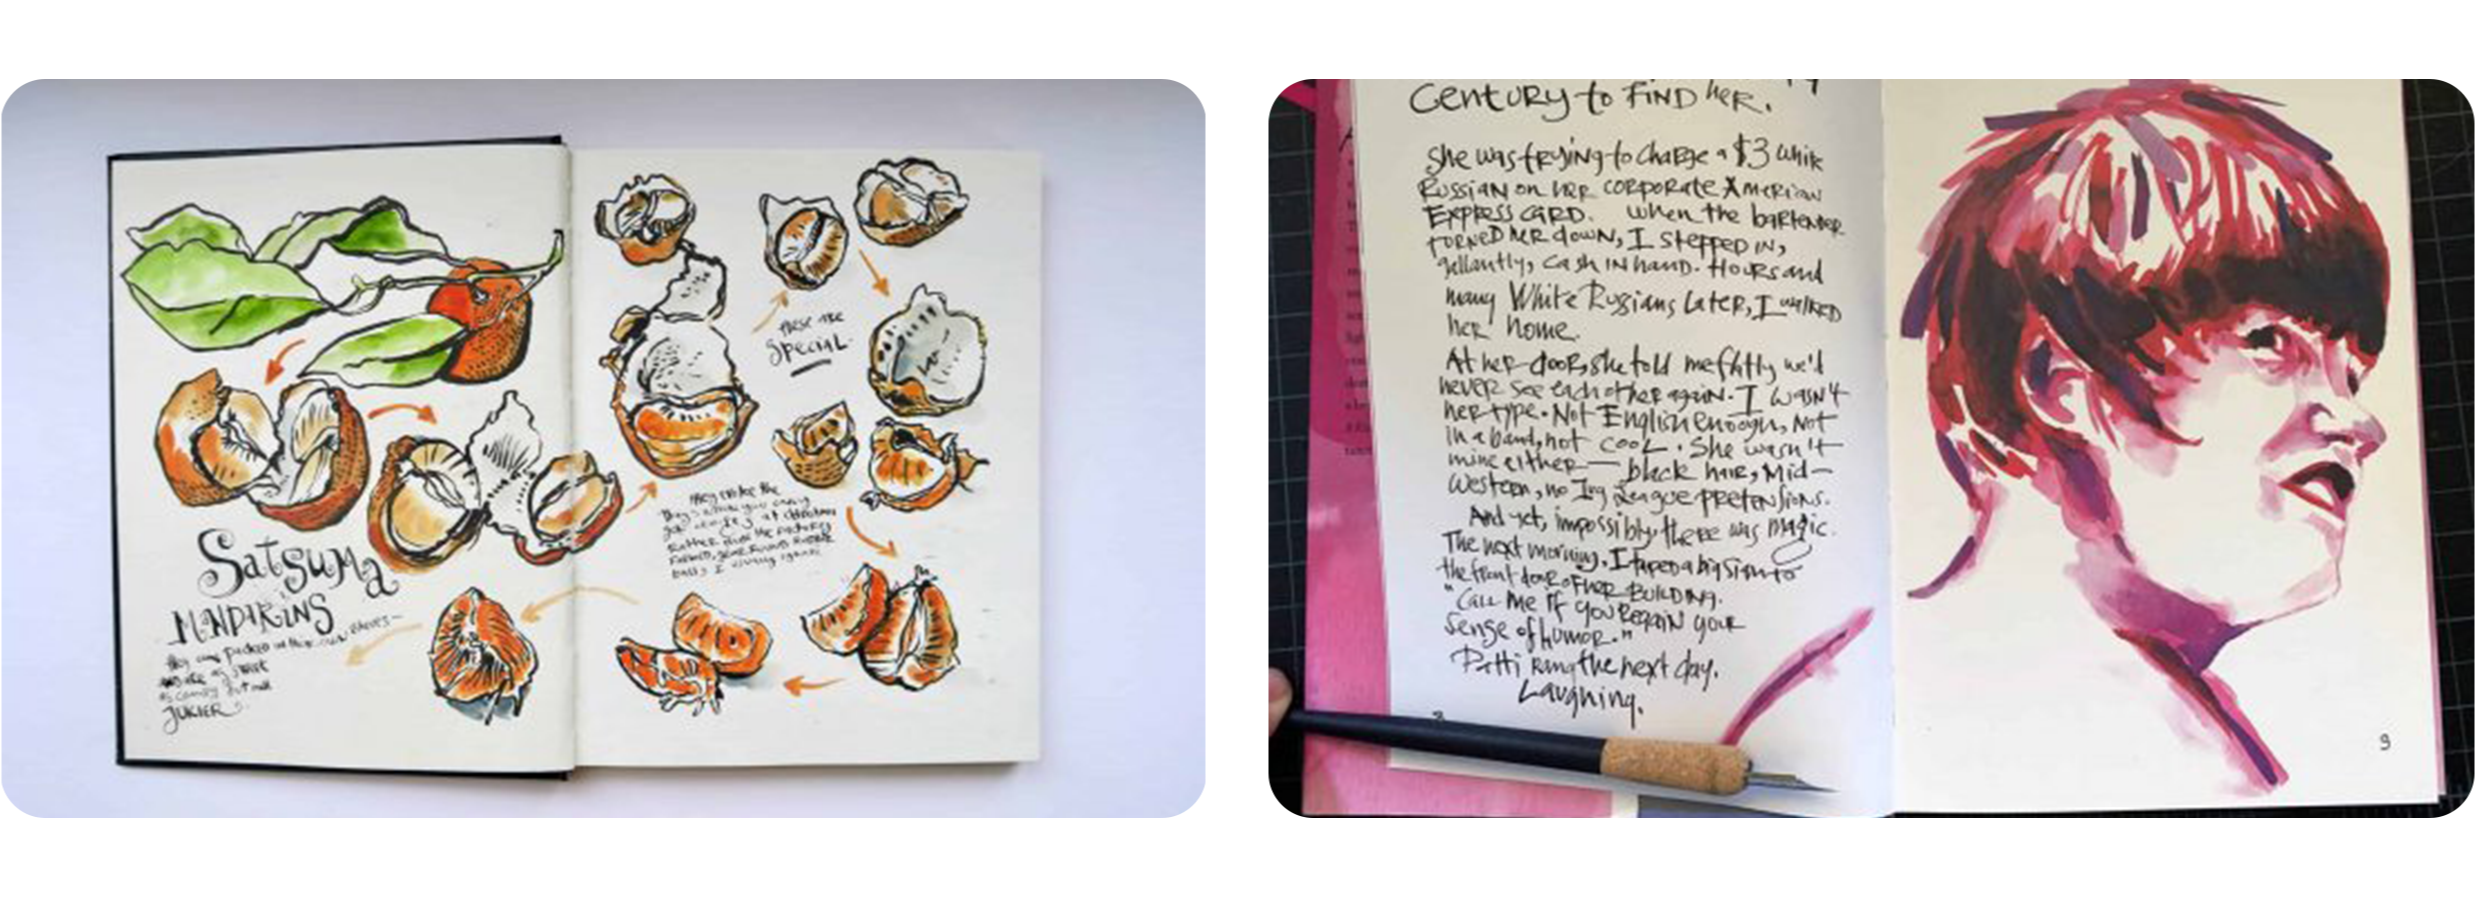 Satsuma
MANDARINS
they come packed in their own leaves—
as sweet
as candy but
JUICIER
these are
special
they evoke the
at christmas
rather than the
balls I
Century to FIND her.
She was trying to charge a $3 White
Russian on her corporate American
Express card. When the bartender
turned her down, I stepped in,
gallantly, cash in hand. Hours and
many White Russians later, I walked
her home.
At her door, she told me flatly we'd
never see each other again. I wasn't
her type. Not English enough, Not
in a band, not cool. She wasn't
mine either — black hair, Mid-
Western, no Ivy League pretensions.
And yet, impossibly, there was magic.
The next morning, I taped a big sign to
the front door of her building.
"Call me if you regain your
sense of humor."
Patti rang the next day.
Laughing.
9